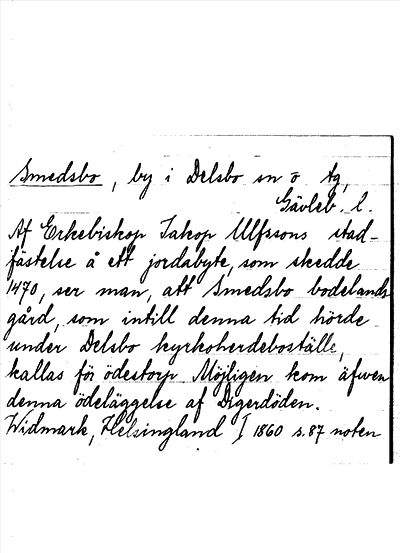 Smedsbo, by i Delsbo sn o tg,
Gävleb. l.
Af Erkebiskop Jakop Ulfssons stad-
fästelse å ett jordabyte, som skedde
1470, ser man, att Smedsbo bodelands
gård, som intill denna tid hörde
under Delsbo kyrkoherdeboställe,
kallas för ödestorp Möjligen kom äfwen
denna ödeläggelse af Digerdöden.
Widmark, Helsingland I 1860 s. 87 noten